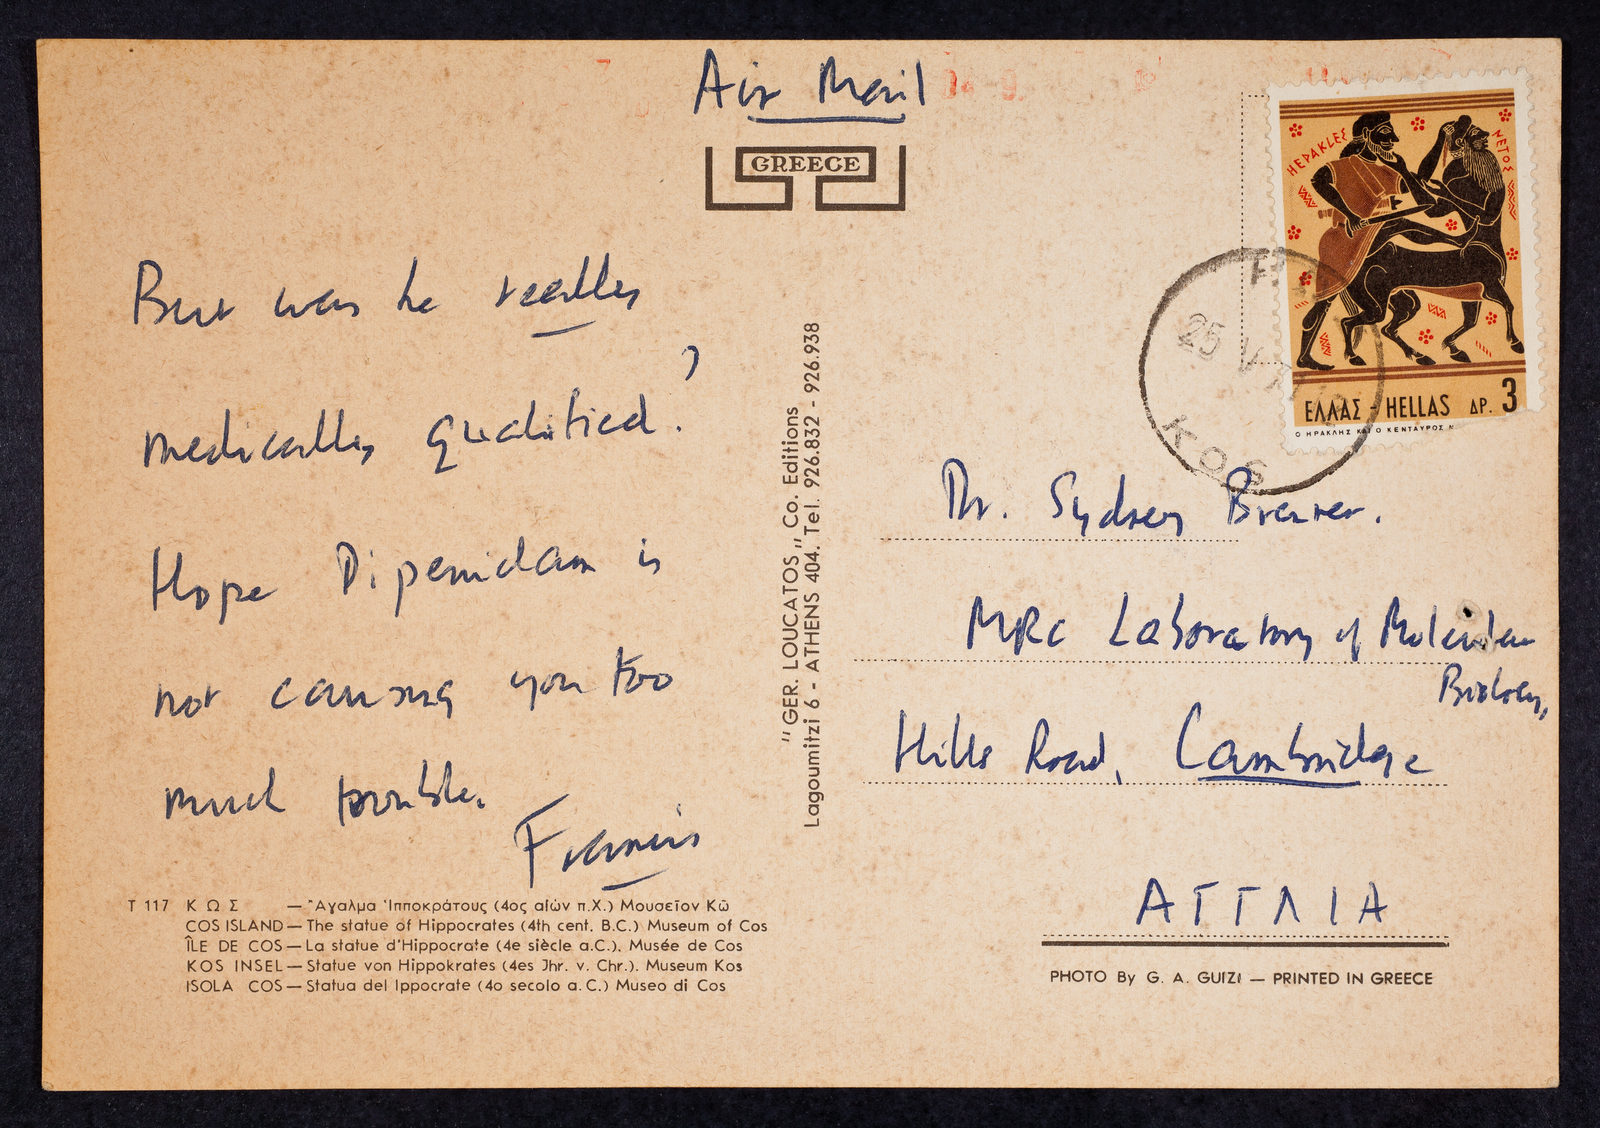 Air Mail
GREECE
But was he really
medically qualified?
Hope Dipenidam is
not causing you too
much trouble.
Francis
T 117 Κ Ω Σ — Ἄγαλμα Ἱπποκράτους (4ος αἰών π.Χ.) Μουσεῖον Κῶ
COS ISLAND — The statue of Hippocrates (4th cent. B.C.) Museum of Cos
ÎLE DE COS — La statue d'Hippocrate (4e siècle a.C.). Musée de Cos
KOS INSEL — Statue von Hippokrates (4es Jhr. v. Chr.). Museum Kos
ISOLA COS — Statua del Ippocrate (4o secolo a.C.) Museo di Cos
"GER. LOUCATOS,, Co. Editions
Lagoumitzi 6 - ATHENS 404. Tel. 926.832 - 926.938
ΗΕΡΑΚLΕΣ
ΝΕΤΟΣ
ΕΛΛΑΣ - HELLAS ΔΡ. 3
Ο ΗΡΑΚΛΗΣ ΚΑΙ Ο ΚΕΝΤΑΥΡΟΣ Ν
25 V
ΚΟΣ
Dr. Sydney Brenner.
MRC Laboratory of Molecular
Biology,
Hills Road, Cambridge
ΑΓΓΛΙΑ
PHOTO By G. A. GUIZI — PRINTED IN GREECE